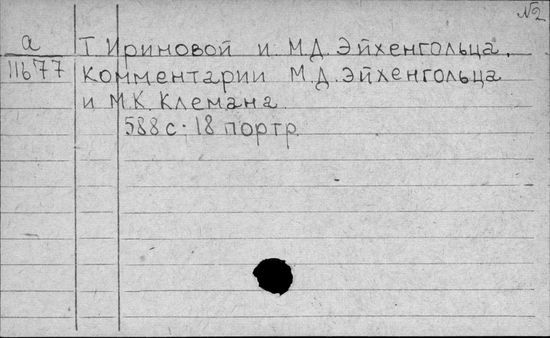 №2
а
11677
Т. Ириновой и М.Д. Эйхенгольца.
Комментарии М.Д. Эйхенгольца
и М.К. Клемана.
588 с. 18 портр.